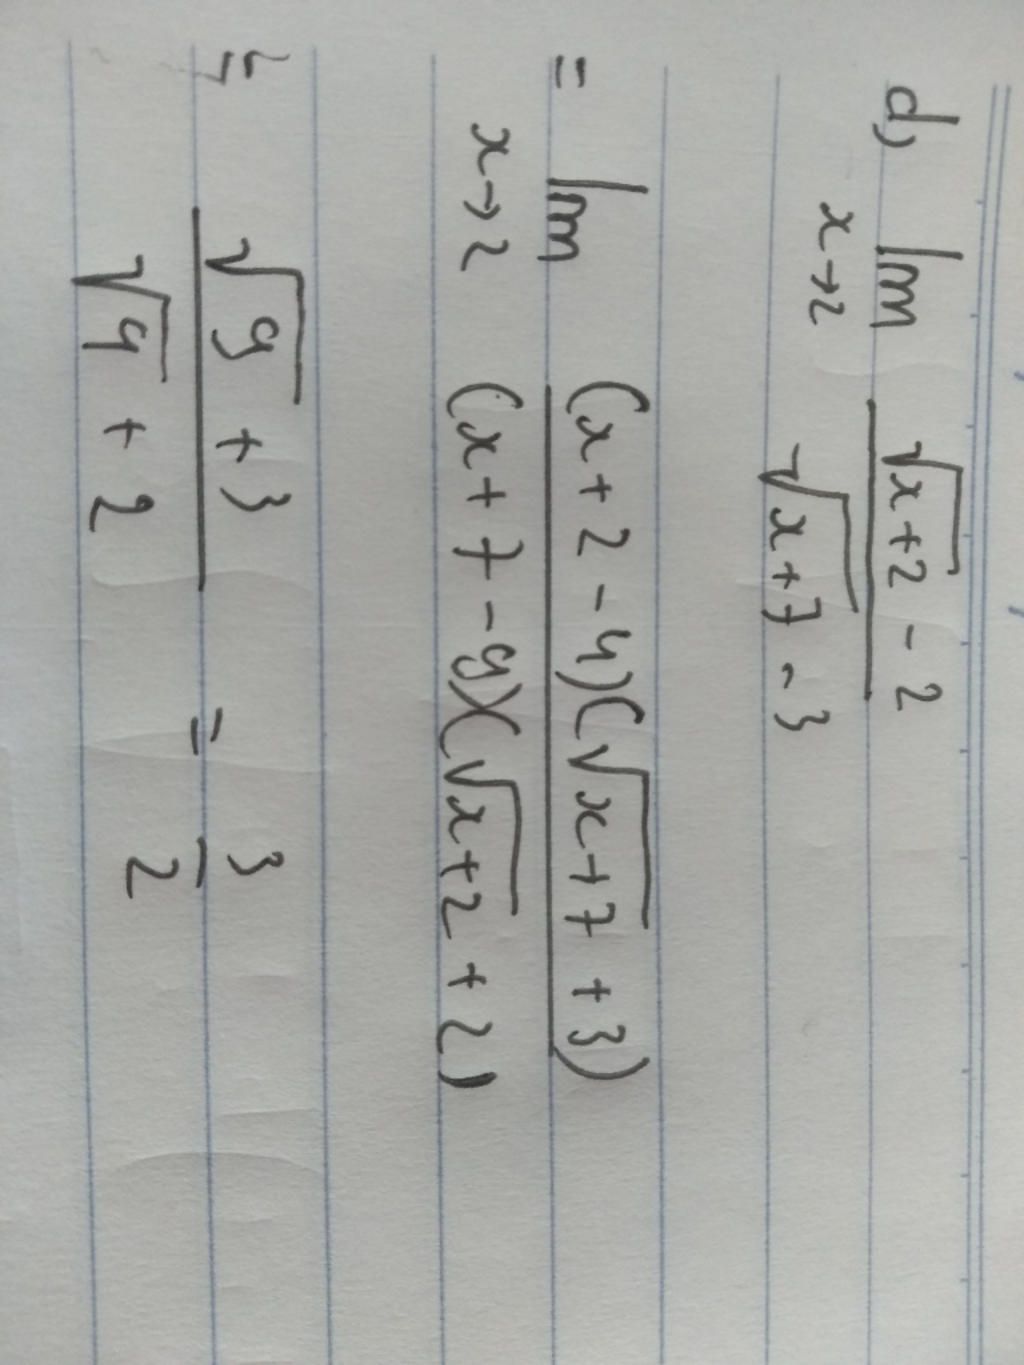 d) lim x→2 (√(x+2) - 2)/(√(x+7) - 3)
= lim x→2 ((x+2-4)(√(x+7) + 3))/((x+7-9)(√(x+2) + 2))
= (√9 + 3)/(√4 + 2) = 3/2